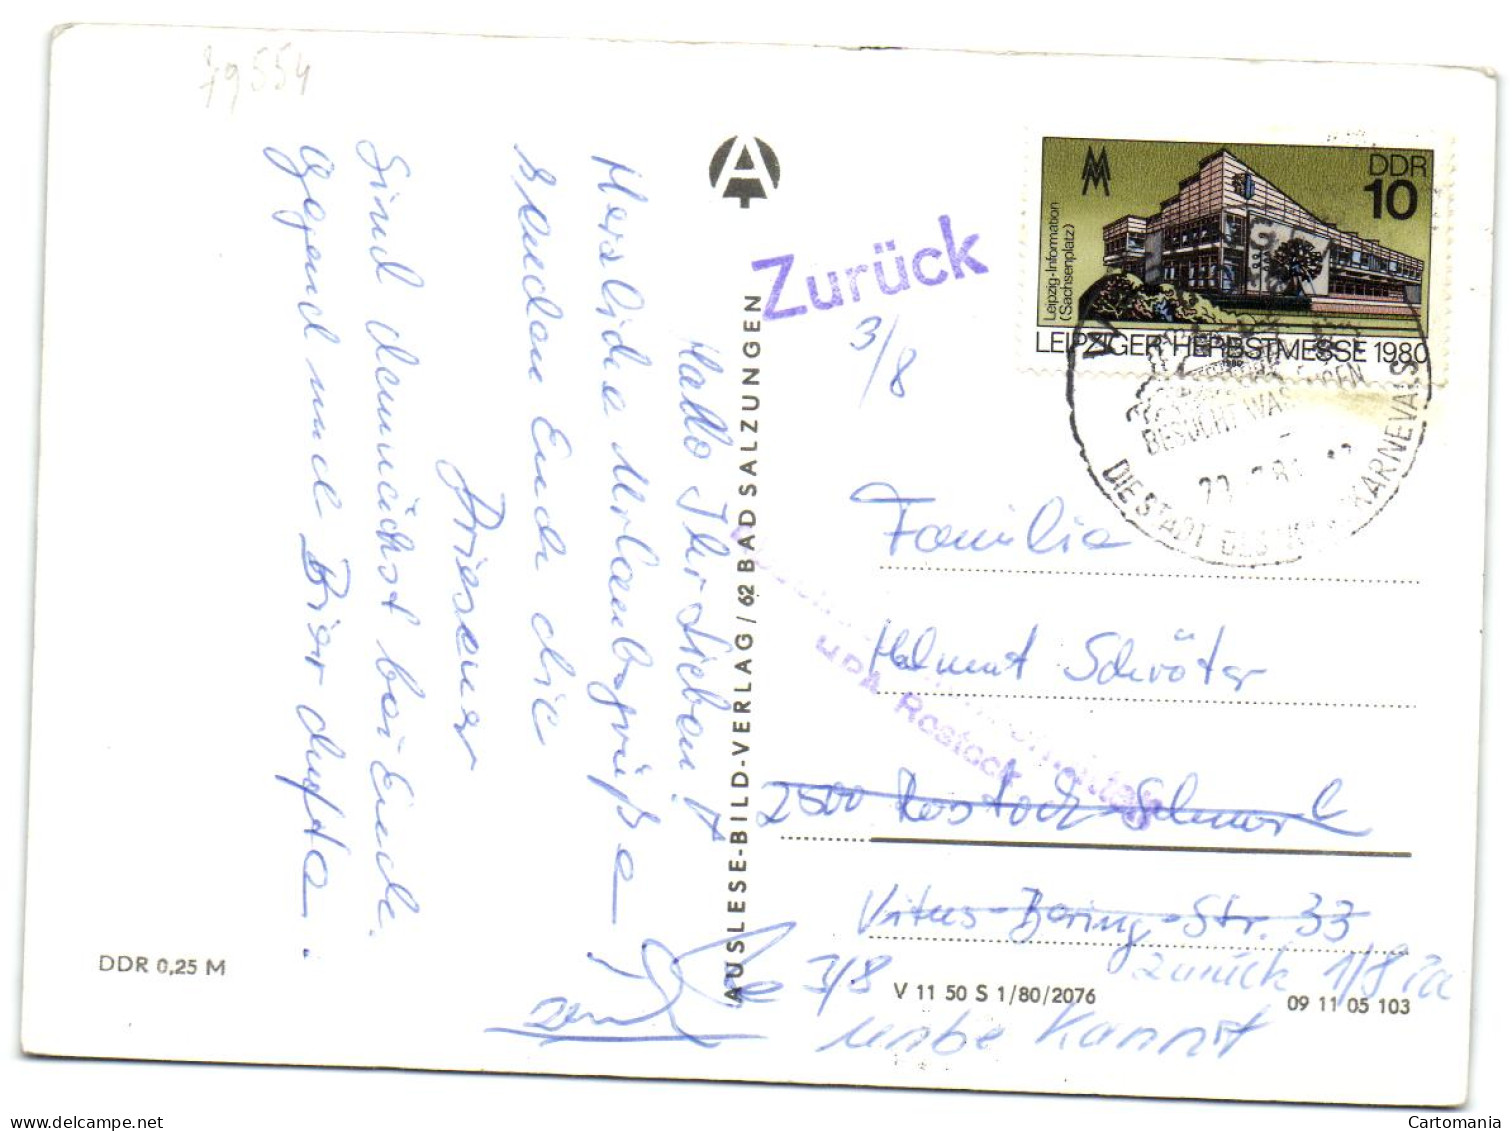 79554
Hallo Ihr Lieben!
Herzliche Urlaubsgrüße
senden Euch die
Driesener
Sind demnächst bei Euch.
Gegend und Bier dufte.
DDR 0,25 M
AUSLESE-BILD-VERLAG / 62 BAD SALZUNGEN
A
Zurück
3/8
DDR
10
Leipzig-Information
(Sachsenplatz)
LEIPZIGER HERBSTMESSE 1980
BESUCHT
DIE STADT DES KARNEVALS
Familie
Helmut Schröter
HPA Rostock
2500 Rostock-Schmarl
Vitus-Bering-Str. 33
zurück 1/8
3/8
unbekannt
V 11 50 S 1/80/2076
09 11 05 103
delcampe.net
Cartomania